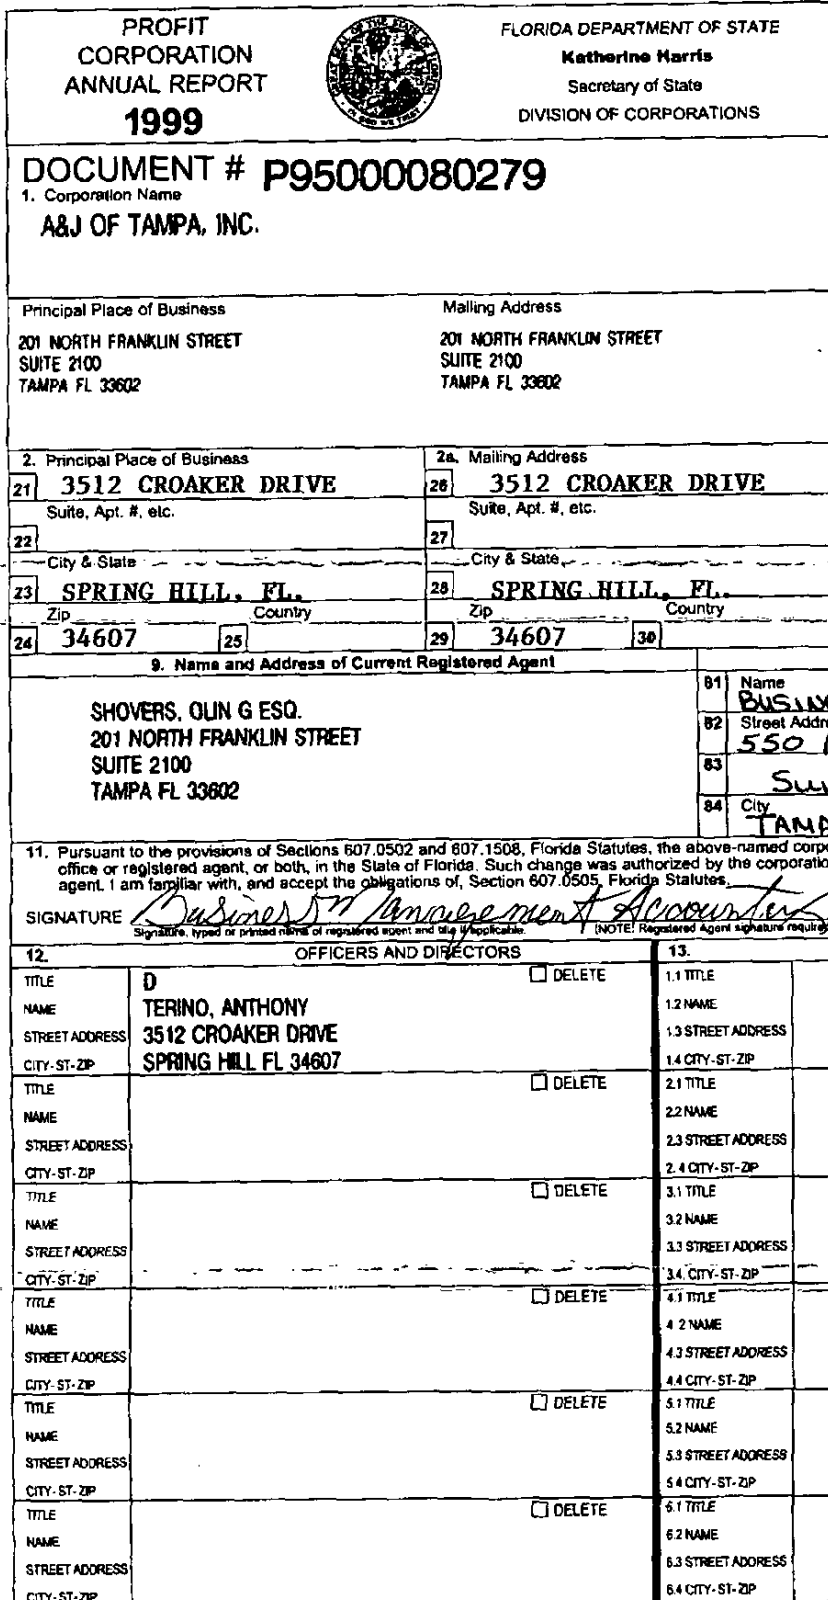 PROFIT
CORPORATION
ANNUAL REPORT
1999
FLORIDA DEPARTMENT OF STATE
Katherine Harris
Secretary of State
DIVISION OF CORPORATIONS
DOCUMENT # P95000080279
1. Corporation Name
A&J OF TAMPA, INC.
Principal Place of Business
201 NORTH FRANKLIN STREET
SUITE 2100
TAMPA FL 33602
Mailing Address
201 NORTH FRANKLIN STREET
SUITE 2100
TAMPA FL 33602
2. Principal Place of Business
21 3512 CROAKER DRIVE
Suite, Apt. #, etc.
22
City & State
23 SPRING HILL, FL.
Zip Country
24 34607 25
2a. Mailing Address
26 3512 CROAKER DRIVE
Suite, Apt. #, etc.
27
City & State
28 SPRING HILL, FL.
Zip Country
29 34607 30
9. Name and Address of Current Registered Agent
SHOVERS, OLIN G ESQ.
201 NORTH FRANKLIN STREET
SUITE 2100
TAMPA FL 33602
81 Name
BUSIN
82 Street Addr
550
83
Sui
84 City
TAMP
11. Pursuant to the provisions of Sections 607.0502 and 607.1508, Florida Statutes, the above-named corpo
office or registered agent, or both, in the State of Florida. Such change was authorized by the corporatio
agent. I am familiar with, and accept the obligations of, Section 607.0505, Florida Statutes.
SIGNATURE Business Management Accounting
Signature, typed or printed name of registered agent and title if applicable. (NOTE: Registered Agent signature require
12. OFFICERS AND DIRECTORS 13.
TITLE D DELETE 1.1 TITLE
NAME TERINO, ANTHONY 1.2 NAME
STREET ADDRESS 3512 CROAKER DRIVE 1.3 STREET ADDRESS
CITY-ST-ZIP SPRING HILL FL 34607 1.4 CITY-ST-ZIP
TITLE DELETE 2.1 TITLE
NAME 2.2 NAME
STREET ADDRESS 2.3 STREET ADDRESS
CITY-ST-ZIP 2.4 CITY-ST-ZIP
TITLE DELETE 3.1 TITLE
NAME 3.2 NAME
STREET ADDRESS 3.3 STREET ADDRESS
CITY-ST-ZIP 3.4. CITY-ST-ZIP
TITLE DELETE 4.1 TITLE
NAME 4 2 NAME
STREET ADDRESS 4.3 STREET ADDRESS
CITY-ST-ZIP 4.4 CITY-ST-ZIP
TITLE DELETE 5.1 TITLE
NAME 5.2 NAME
STREET ADDRESS 5.3 STREET ADDRESS
CITY-ST-ZIP 5.4 CITY-ST-ZIP
TITLE DELETE 6.1 TITLE
NAME 6.2 NAME
STREET ADDRESS 6.3 STREET ADDRESS
CITY-ST-ZIP 6.4 CITY-ST-ZIP